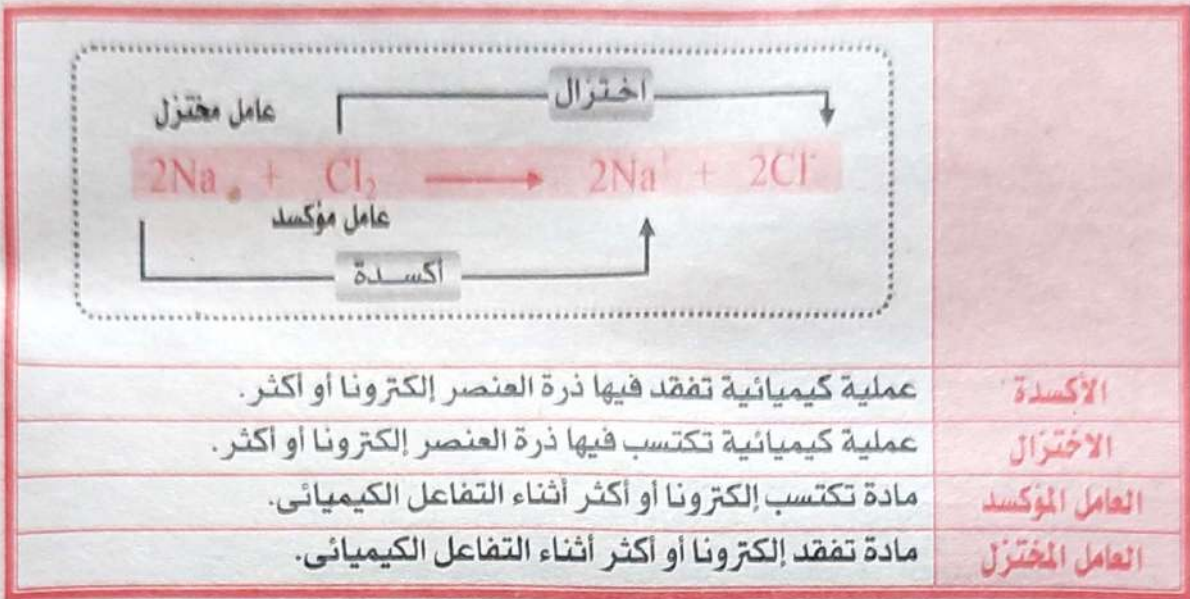 اختزال
عامل مختزل
2Na + Cl₂ ⟶ 2Na⁺ + 2Cl⁻
عامل مؤكسد
أكسدة
الأكسدة عملية كيميائية تفقد فيها ذرة العنصر إلكترونا أو أكثر.
الاختزال عملية كيميائية تكتسب فيها ذرة العنصر إلكترونا أو أكثر.
العامل المؤكسد مادة تكتسب إلكترونا أو أكثر أثناء التفاعل الكيميائى.
العامل المختزل مادة تفقد إلكترونا أو أكثر أثناء التفاعل الكيميائى.